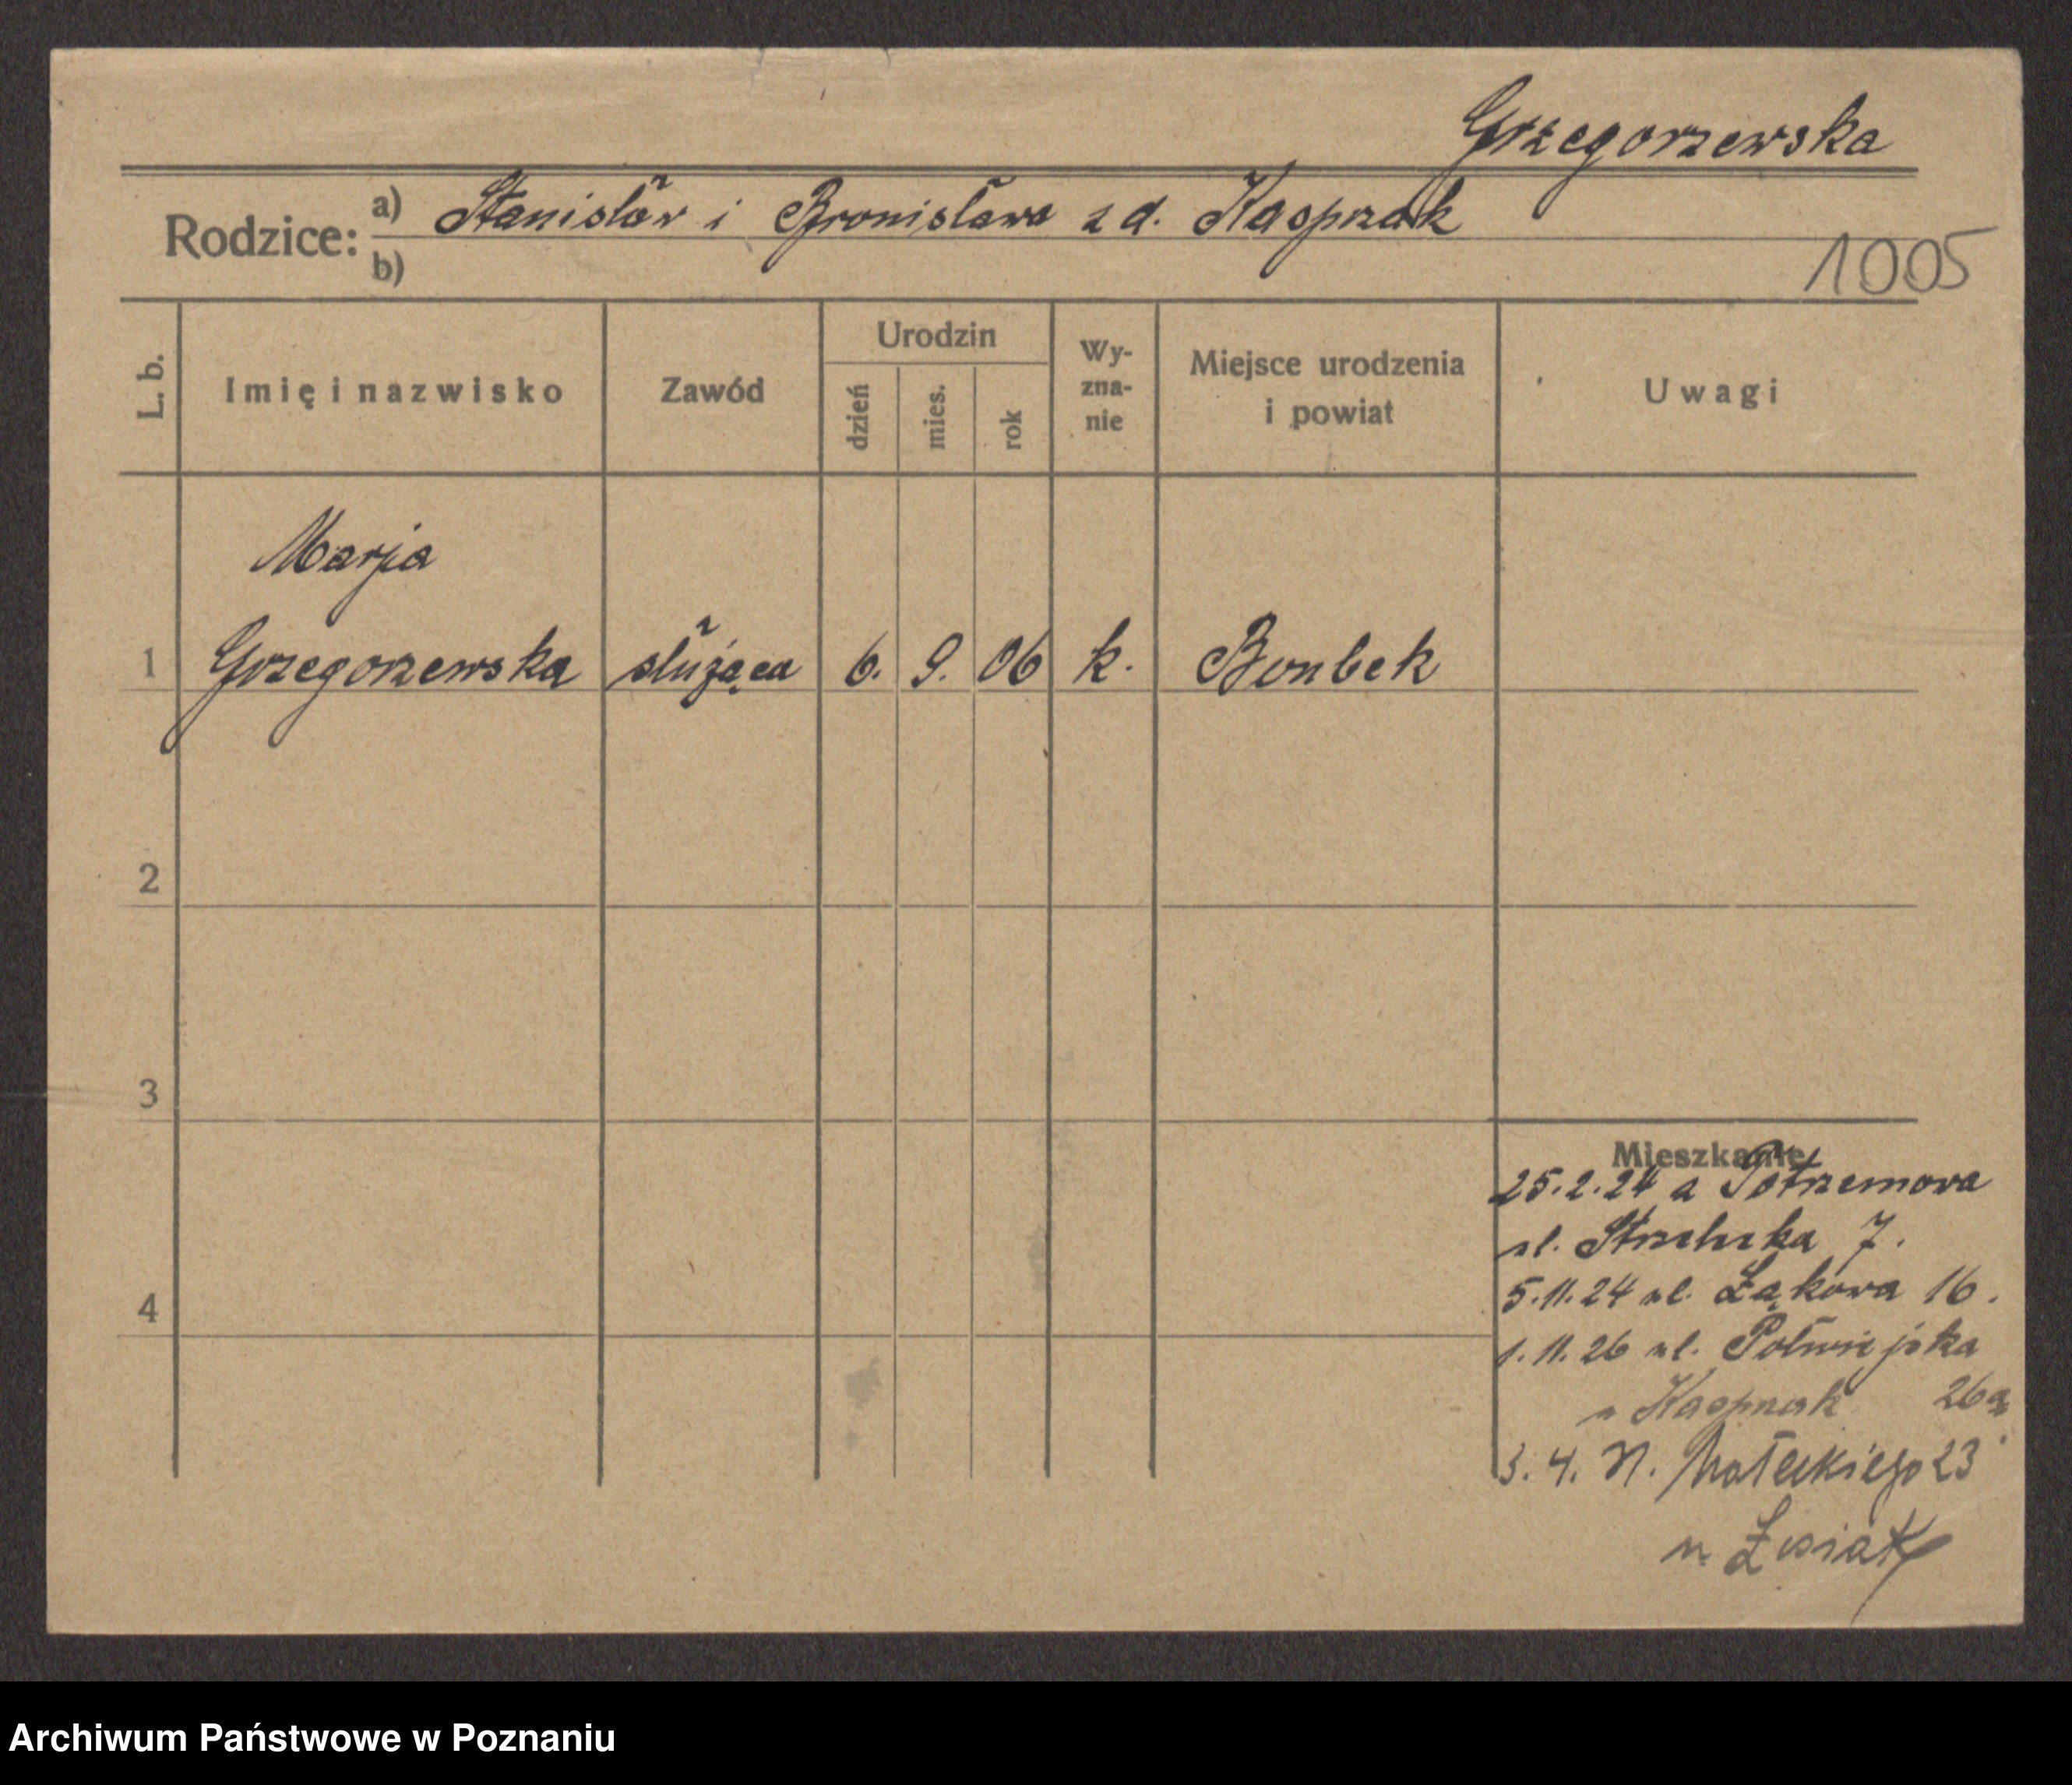 Grzegorzewska
Rodzice: a) Stanisław i Bronisława z d. Kasprzak
b)
1005
L. b.
Imię i nazwisko
Zawód
Urodzin
dzień
mies.
rok
Wy-
zna-
nie
Miejsce urodzenia
i powiat
Uwagi
Marja
1 Grzegorzewska służąca 6. 9. 06 k. Bonbek
2
3
Mieszkanie
25.2.24 a Potrzemowa
ul. Strzelecka 7.
5.11.24 ul. Łąkowa 16.
4
1.11.26 ul. Półwiejska
u Kasprzak 26a
3. 4. Małeckiego 23
u
Archiwum Państwowe w Poznaniu